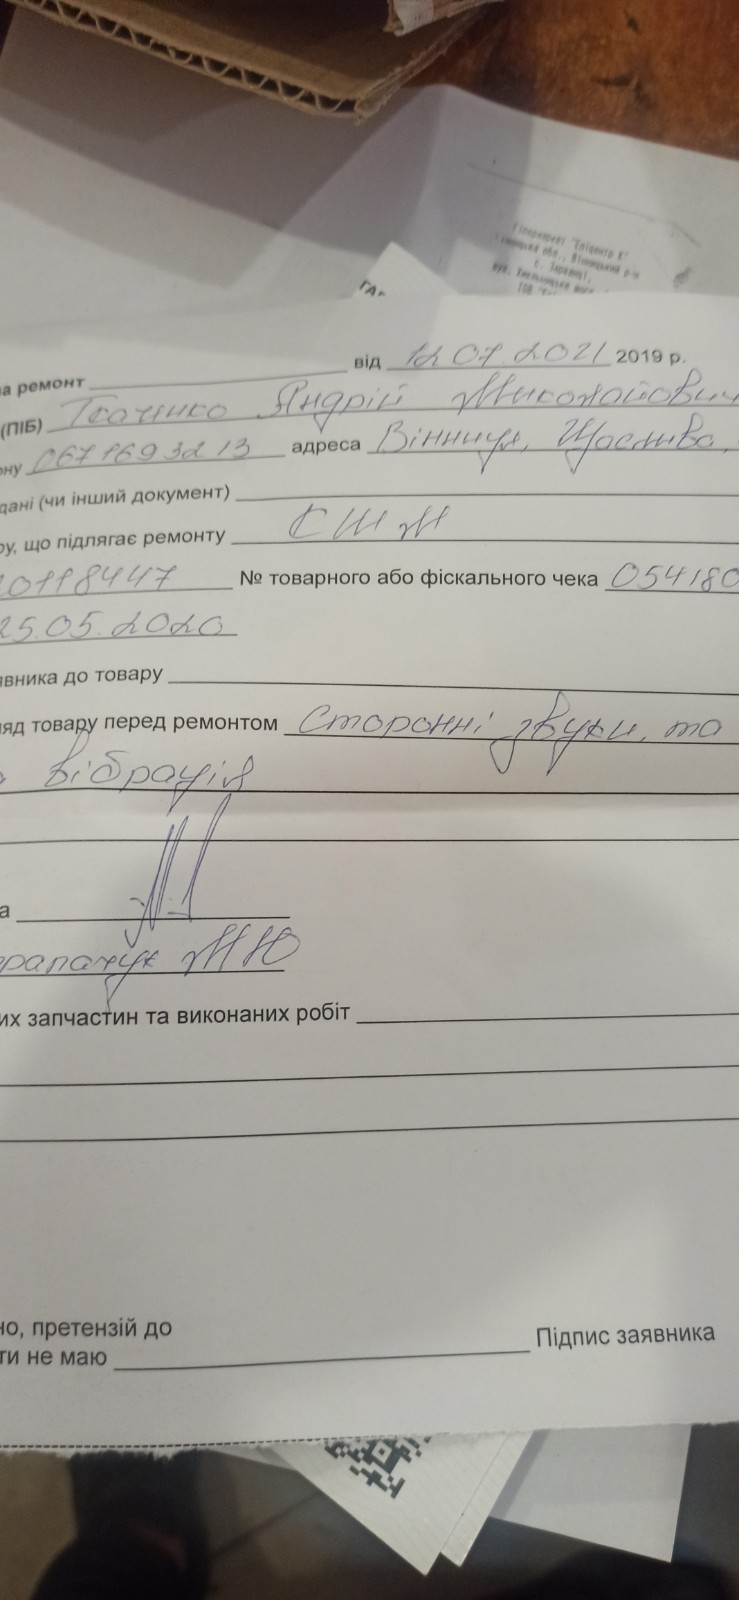 Гіпермаркет "Епіцентр К"
обл., Вінницький р-н
с. Зарванці,
вул. Хмельницьке
ТОВ
ГА
а ремонт від 12.07.2021 2019 р.
(ПІБ) Ткаченко Андрій Миколайович
ну 067 169 32 13 адреса Вінниця, Щаслива,
дані (чи інший документ)
ру, що підлягає ремонту СШМ
20118447 № товарного або фіскального чека 054180
25.05.2020
явника до товару
яд товару перед ремонтом Сторонні звуки, та
вібрація
а
МЮ
их запчастин та виконаних робіт
но, претензій до
ти не маю Підпис заявника